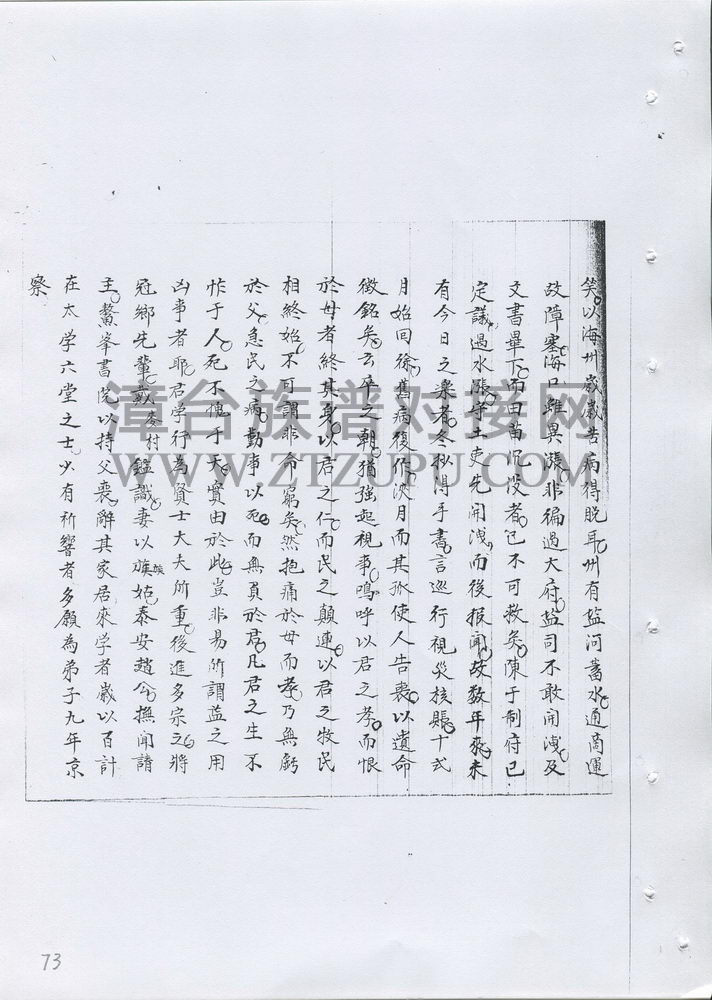 笑以海州歲歲苦病得脫耳州有盐河蓄水通商運
故障塞海口雖異漲非徧過大府盐司不敢開洩及
文書畢下而田苗沉没者已不可救矣陳于制府已
定議過水漲守土吏先開洩而後报聞故数年來未
有今日之樂者冬杪得手書言巡行視災核賬十弍
月始回徐舊病復作浹月而其孤使人告喪以遺命
徵銘矣云卒之朝猶强起視事嗚呼以君之孝而恨
於母者終其身以君之仁而民之顛連以君之牧民
相終始不可謂非命窮矣然抱痛於母而孝乃無虧
於父急民之病勤事以死而無負於君凡君之生不
怍于人死不愧于天實由於此豈非易所謂益之用
凶事者耶君学行為賢士大夫所重後進多宗之将
冠鄉先輩戴麥村鎰識妻以族姪泰安趙公撫閩請
主鰲峯書院以持父喪辭其家居來学者歲以百計
在太学六堂之士少有祈響者多願為弟子九年京
察
漳台族谱对接网
WWW.ZTZUPU.COM
73